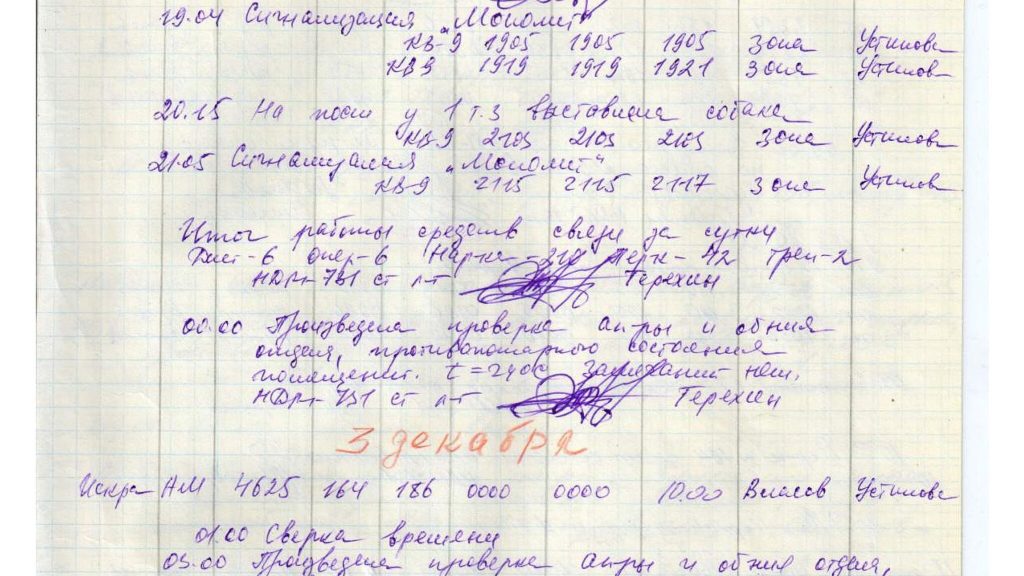 19.04 Сигнализация „Монолит"
КВ-9 1905 1905 1905 Зона Устинова
КВ9 1919 1919 1921 Зона Устинов
20.15 На пост у 1 т.з выставлена собака
КВ-9 2103 2103 2103 Зона Устинов
21.05 Сигнализация „Монолит"
КВ-9 2115 2115 2117 Зона Устинов
Итог работы средств связи за сутки
6 опер-6 42 трен-2
ст л-т Терехин
00.00 Произведена проверка ап-ры и обния
отдел, противопожарного состояния
помещений. t=24°C Замечаний нет.
ст л-т Терехин
3 декабря
Искра АМ 4625 164 186 0000 0000 10.00 Власов Устинова
01.00 Сверка времени
03.00 Произведена проверка ап-ры и обния отдел,